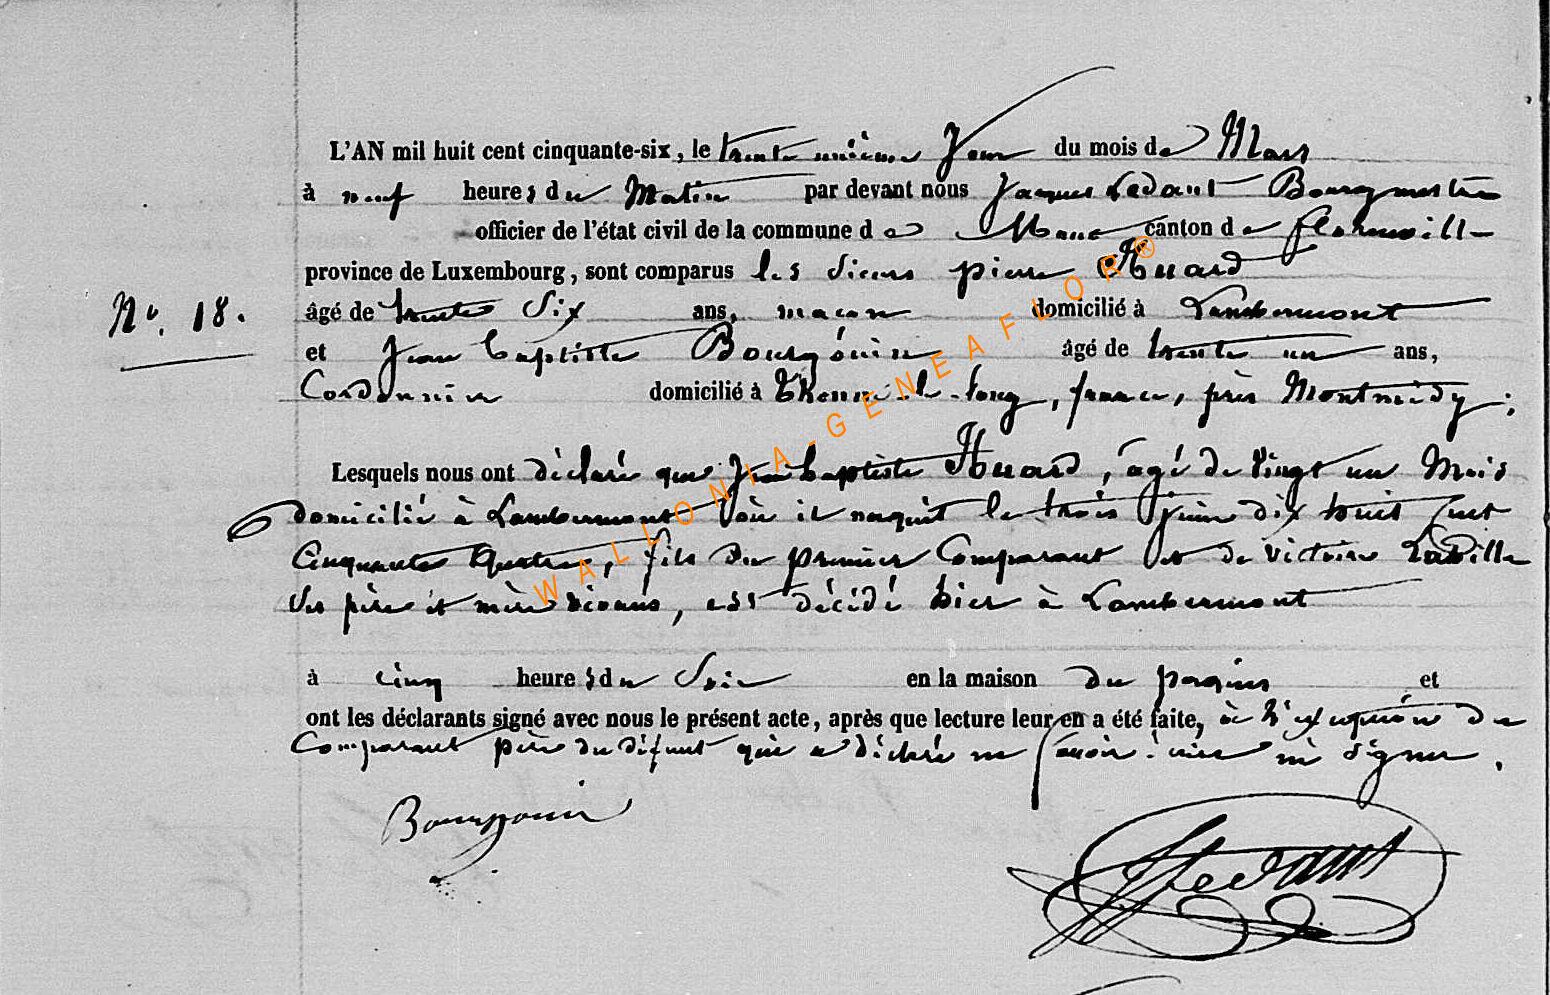 L'AN mil huit cent cinquante-six, le trente unième Jour du mois de Mars
à neuf heures du Matin par devant nous Jacques Ledant Bourgmestre
officier de l'état civil de la commune de canton de florenville
province de Luxembourg, sont comparus les Sieurs pierre Huard
No. 18.
âgé de trente Six ans, maçon domicilié à Lambermont
et Jean baptiste Bourgouin âgé de trente un ans,
Cordonnier domicilié à Thonne-le-long, france, près Montmédy;
Lesquels nous ont déclaré que Jean baptiste Huard, âgé de Vingt un Mois
domicilié à Lambermont où il naquit le trois Juin dix huit cent
Cinquante Quatre, fils du premier Comparant et de Victoire
Ses père et mère vivans, est décédé hier à Lambermont
à cinq heures du Soir en la maison du et
ont les déclarants signé avec nous le présent acte, après que lecture leur en a été faite, à l'exception du
Comparant père du défunt qui a déclaré ne Savoir écrire ni Signer.
Bourgouin
Jledant
WALLONIA-GENEAFLOR®